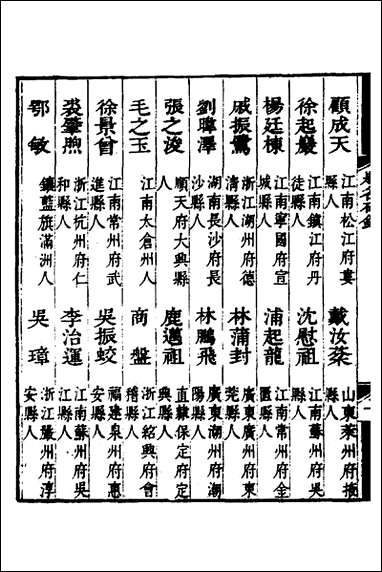 顧成天 江南松江府婁縣人 戴汝棻 山東萊州府掖縣人
徐起巖 江南鎮江府丹徒縣人 沈慰祖 江南蘇州府吳縣人
楊廷棟 江南寧國府宣城縣人 浦起龍 江南常州府金匱縣人
戚振鷺 浙江湖州府德清縣人 林蒲封 廣東廣州府東莞縣人
劉暐澤 湖南長沙府長沙縣人 林鵬飛 廣東潮州府潮陽縣人
張之浚 順天府大興縣人 鹿邁祖 直隸保定府定興縣人
毛之玉 江南太倉州人 商盤 浙江紹興府會稽縣人
徐景曾 江南常州府武進縣人 吳振蛟 福建泉州府惠安縣人
裘肇煦 浙江杭州府仁和縣人 李治運 江南蘇州府吳江縣人
鄂敏 鑲藍旗滿洲人 吳璋 浙江嚴州府淳安縣人